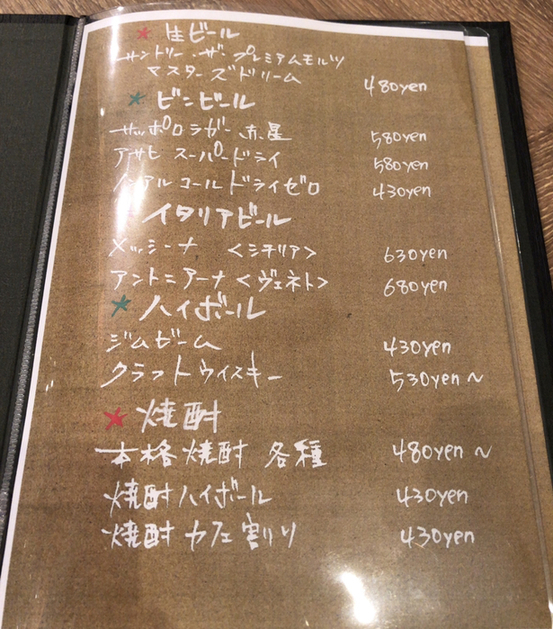 ★ 生ビール
サントリー・ザ・プレミアムモルツ
マスターズドリーム 480yen
★ ビンビール
サッポロラガー 赤星 580yen
アサヒ スーパードライ 580yen
ノンアルコール ドライゼロ 430yen
イタリアビール
メッシーナ <シチリア> 630yen
アントニアーナ <ヴェネト> 680yen
★ ハイボール
ジムビーム 430yen
クラフトウイスキー 530yen~
★ 焼酎
本格焼酎 各種 480yen~
焼酎ハイボール 430yen
焼酎カフェ割り 430yen